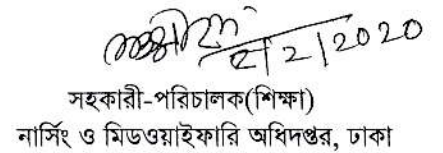 2/2/2020
সহকারী-পরিচালক(শিক্ষা)
নার্সিং ও মিডওয়াইফারি অধিদপ্তর, ঢাকা